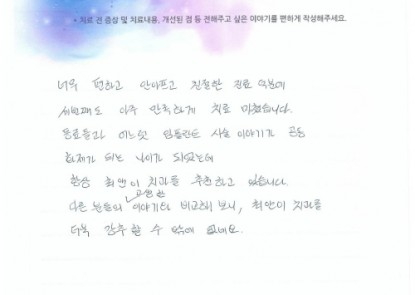 * 치료 전 증상 및 치료내용, 개선된 점 등 전해주고 싶은 이야기를 편하게 작성해주세요.
너무 편하고 안아프고 친절한 진료 덕분에
세번째도 아주 만족하게 치료 마쳤습니다.
동료들과 어느덧 임플란트 시술 이야기가 공동
화제가 되는 나이가 되었는데
항상 최앤이 치과를 추천하고 있습니다.
고생한
다른 분들의 이야기와 비교해 보니, 최앤이 치과를
더욱 강추할 수 밖에 없네요.